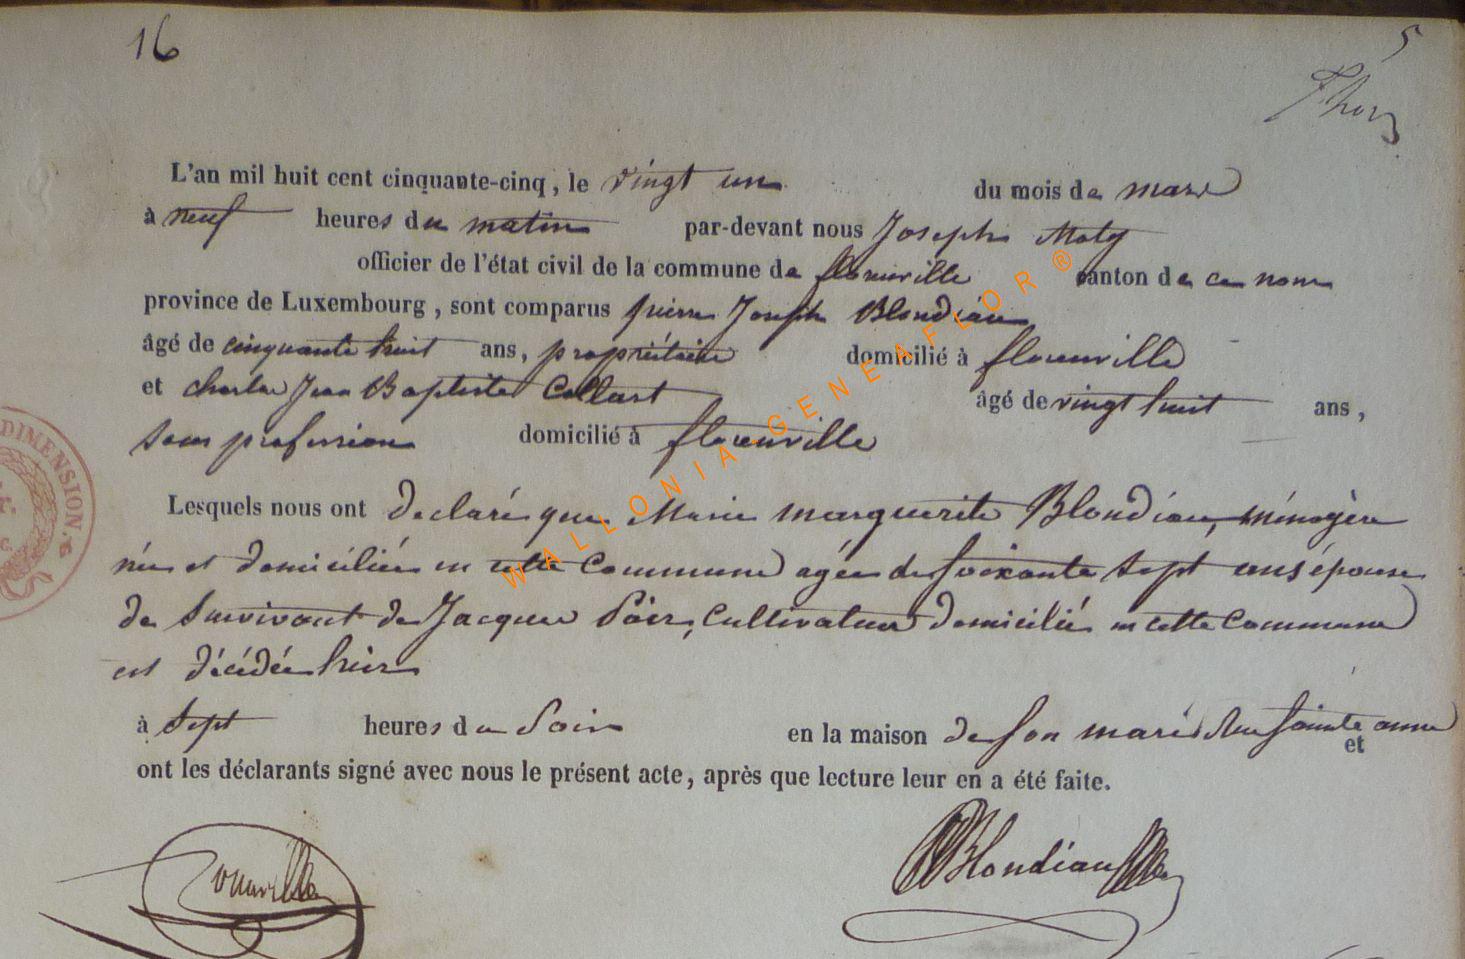 16
5
L'an mil huit cent cinquante-cinq, le vingt un du mois de mars
à neuf heures du matin par-devant nous Joseph
officier de l'état civil de la commune de florenville canton de ce nom
province de Luxembourg, sont comparus pierre Joseph Blondiau
âgé de cinquante huit ans, propriétaire domicilié à florenville
et charles Jean Baptiste Collart âgé de vingt huit ans,
sans profession domicilié à florenville
Lesquels nous ont declaré que Marie marguerite Blondiau, ménagère
née et domiciliée en cette Commune agée de soixante sept ans épouse
de survivant de Jacques, Cultivateur domicilié en cette Commune
est décédée hier
à sept heures du soir en la maison de son mari Rue sainte anne
et
ont les déclarants signé avec nous le présent acte, après que lecture leur en a été faite.
Blondiau
DIMENSION.
WALLONIA-GENEAFLOR ®